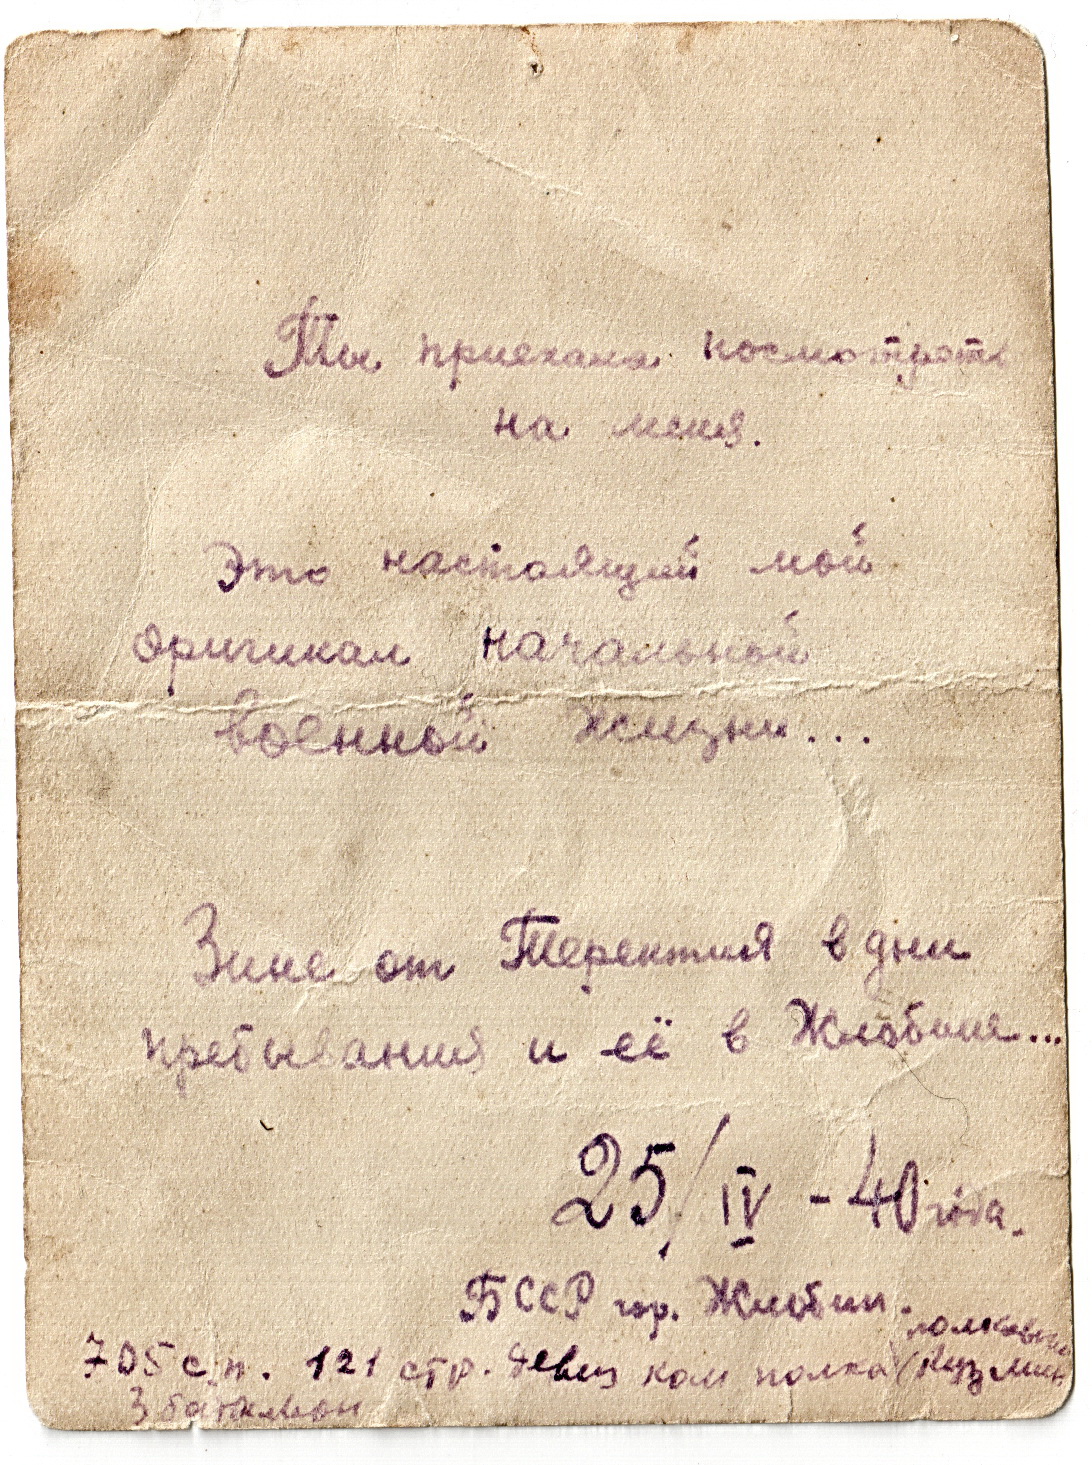 Ты приехала посмотреть
на меня.
Это настоящий мой
оригинал начальной
военной жизни...
Зине от Терентия в дни
пребывания и её в Жлобине...
25/IV - 40 года.
БССР гор. Жлобин.
полковник
705 с.п. 121 стр. дивиз ком полка (Кузмин
3 батальон